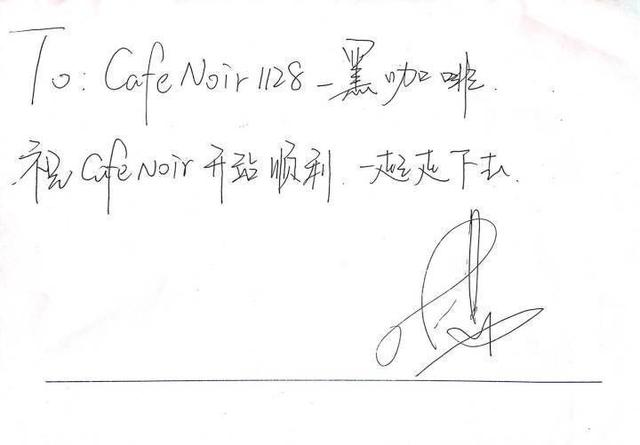 To: Cafe Noir 1128_黑咖啡.
祝 Cafe Noir 开站顺利 一起走下去.